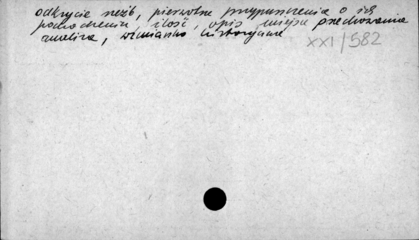 odkrycie rzeźb, pierwotne przypuszczenia o ich
pochodzeniu, ilość, opis miejsca przechowania
analiza, wzmianka historyczna
XXI/582